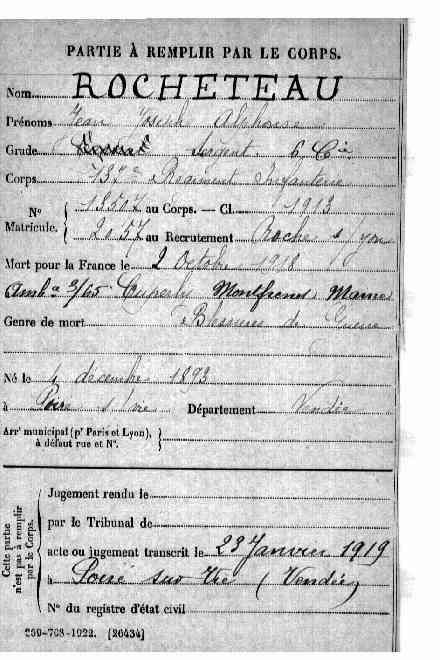 PARTIE À REMPLIR PAR LE CORPS.
Nom ROCHETEAU
Prénoms Jean Joseph Alphonse
Grade Sergent 6 Cie
Corps 137e Régiment Infanterie
N° Matricule. { 13507 au Corps. — Cl. 1913
2157 au Recrutement Roche s/yon
Mort pour la France le 2 octobre 1918
Ambce 3/65 Cuperly Marne
Genre de mort Blessures de Guerre
Né le 4 décembre 1893
à Poiré s/ vie Département Vendée
Arrt municipal (pr Paris et Lyon), à défaut rue et N°. }
Cette partie n'est pas à remplir par le Corps.
Jugement rendu le
par le Tribunal de
acte ou jugement transcrit le 23 Janvier 1919
à Poiré sur Vie (Vendée)
N° du registre d'état civil
269-708-1922. [26434]